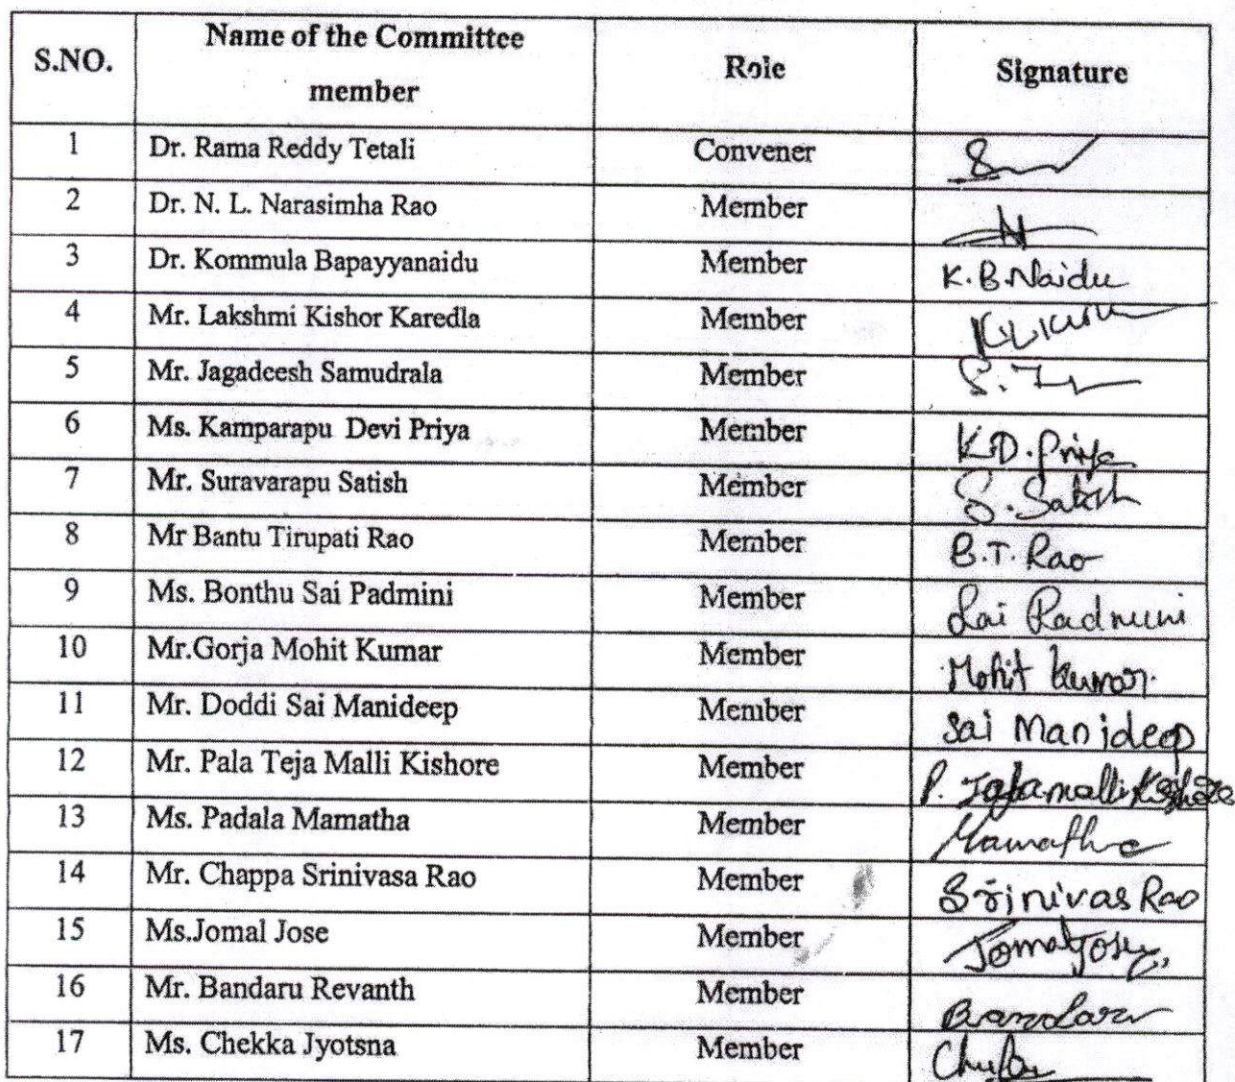 S.NO. Name of the Committee member Role Signature
1 Dr. Rama Reddy Tetali Convener
2 Dr. N. L. Narasimha Rao Member
3 Dr. Kommula Bapayyanaidu Member K.B.Naidu
4 Mr. Lakshmi Kishor Karedla Member
5 Mr. Jagadeesh Samudrala Member
6 Ms. Kamparapu Devi Priya Member K.D.Priya
7 Mr. Suravarapu Satish Member S.Satish
8 Mr Bantu Tirupati Rao Member B.T. Rao
9 Ms. Bonthu Sai Padmini Member Sai Padmini
10 Mr.Gorja Mohit Kumar Member Mohit kumar.
11 Mr. Doddi Sai Manideep Member Sai Manideep
12 Mr. Pala Teja Malli Kishore Member
13 Ms. Padala Mamatha Member Mamatha
14 Mr. Chappa Srinivasa Rao Member Srinivas Rao
15 Ms.Jomal Jose Member Jomal Jose
16 Mr. Bandaru Revanth Member Bandaru
17 Ms. Chekka Jyotsna Member